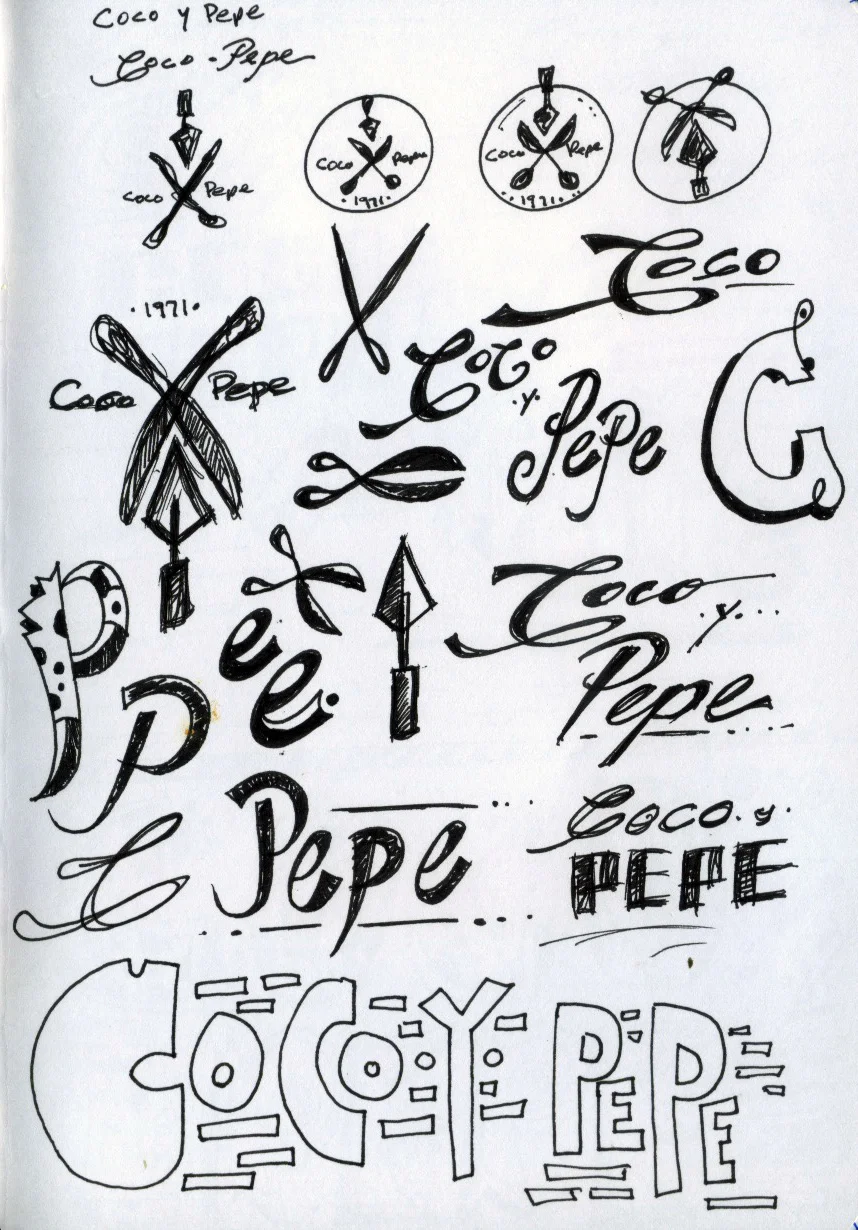 Coco y Pepe
Coco - Pepe
Coco Pepe
Coco Pepe
·1971·
Coco Pepe
··1971··
Coco
·1971·
Coco Pepe
Coco
·y·
Pepe
C
P
P
e
e
Coco
·y·...
Pepe
C
Pepe
Coco·y·
PEPE
COCO·Y·PEPE